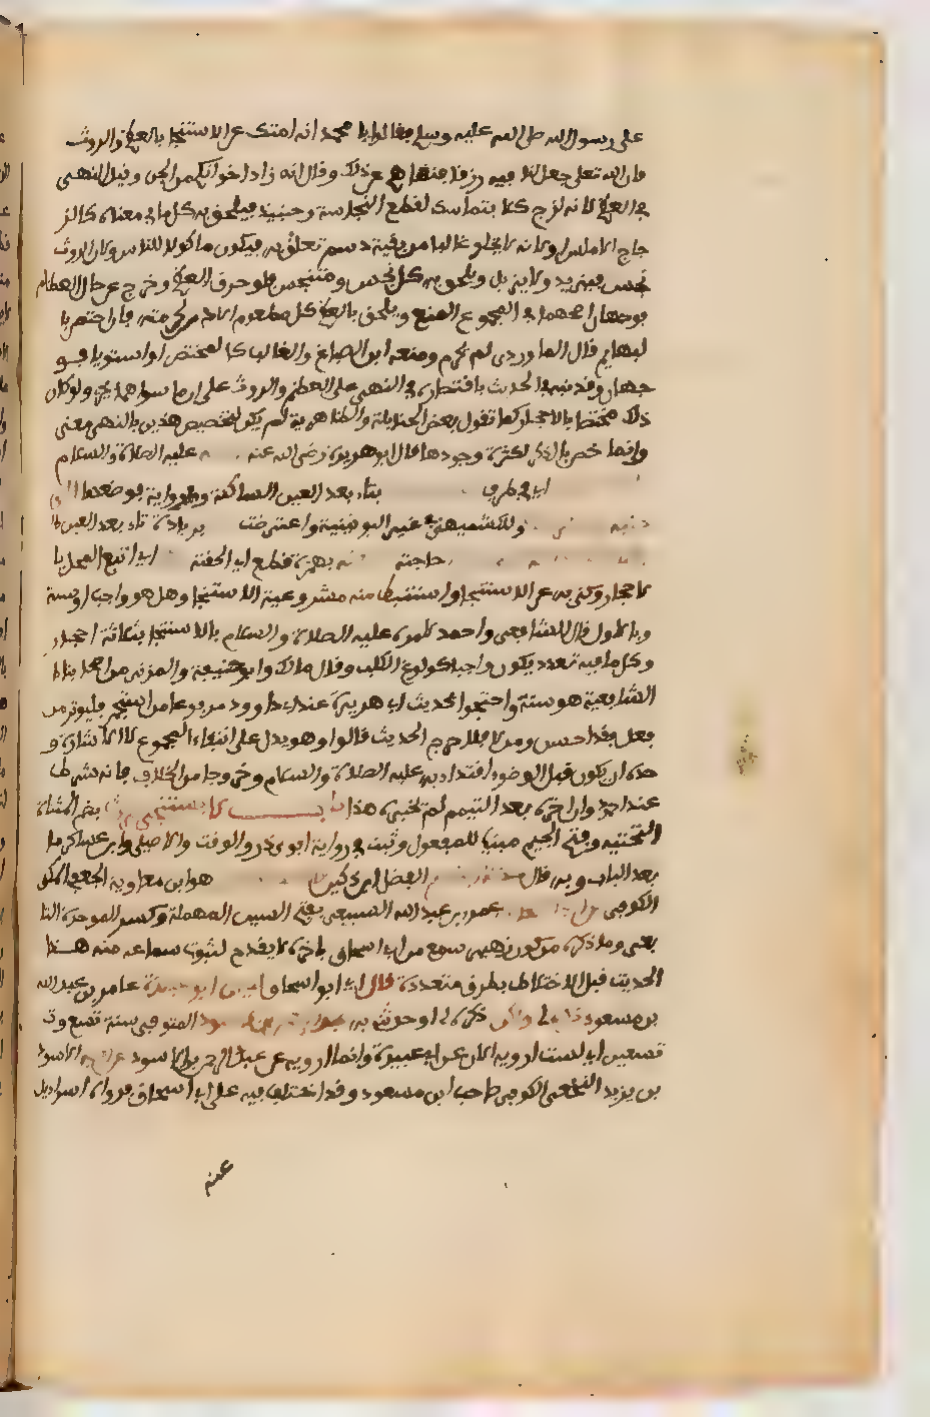 على رسول الله صلى الله عليه وسلم فقالوا يا محمد انه امتك عن الاستنجا بالعظم والروث
فان الله تعلى جعل لنا فيه رزقا فنهاهم عن ذلك وقال انه زاد اخوانكم من الجن وقيل النهى
في العظم لانه لزج فلا يتماسك لقطع النجاسة وحينيذ فيلحق به كل ما في معناه كالز
جاج الاملس او لانه لا يخلو غالبا من بقية دسم تعلق به فيكون ماكولا للناس ولان الروث
نجس فيزيد ولا يزيل ويلحق به كل نجس ومتنجس فلو حرق العظم وخرج عن حال العظام
فوجهان اصحهما في المجموع المنع ويلحق بالعظم كل مطعوم للادمي
لبهايم قال الماوردي لم يحرم ومنعه ابن الصباغ والغالب كالمختص او استويا فو
جهان وقد نبه في الحديث باقتصاره في النهى على العظم والروث على ان ما سواهما يجزي ولو كان
ذلك مختصا بالاحجار كما تقول بعض الحنابلة والظاهرية لم يكن لتخصيص هذين بالنهى معنى
وانما خصا بالذكر لكثرة وجودهما قال ابو هريرة رضى الله عنه عليه الصلاة والسلام
اي في طرف بتاء بعد العين الساكنة وفي رواية فوضعها
وللكشميهني في غير اليونينية واعترضت بزيادة تاء بعد العين
حاجته بهمزة قطع اي الحقته اي اتبع المحل با
لاحجار وكنى به عن الاستنجا واستنبط منه مشروعية الاستنجا وهل هو واجب او سنة
وبالاول قال الشافعى واحمد لامره عليه الصلاة والسلام بالاستنجا بثلاثة احجار
وكل ما فيه تعدد يكون واجبا كولوغ الكلب وقال مالك وابو حنيفة والمزنى من اصحابنا
الشافعية هو سنة واحتجوا لحديث ابي هريرة عند ابي داوود مرفوعا من استجمر فليوتر من
فعل فقد احسن ومن لا فلا حرج الحديث قالوا وهو يدل على انتفاء المجموع لا الايتار و
حده ان يكون قبل الوضوء اقتداء به عليه الصلاة والسلام وخروجا من الخلاف فانه شرط
عند احمد وان اخره بعد التيمم لم يجزه هذا باب لا يستنجى بروث بضم المثناة
التحتية وفتح الجيم مبنيا للمفعول وثبت في رواية ابوي ذر والوقت والاصيلى وابن عساكر ما
بعد الباب وبه قال الفضل ابن دكين هو ابن معاوية الجعفي المكى
الكوفى عمرو بن عبد الله السبيعى بفتح السين المهملة وكسر الموحدة التا
بعى وما ذكر من كون زهير سمع من ابي اسحاق باخرة لا يقدح لثبوت سماعه منه هذا
الحديث قبل الاختلاط بطرق متعددة قال اي ابو اسحاق ليس ابو عبيدة عامر بن عبد الله
بن مسعود ذكره لي اوحدثني به المتوفى سنة تسع وت
تسعين اي لست ارويه الان عن ابي عبيدة وانما ارويه عن عبد الرحمن بن الاسود عن ابيه الاسود
بن يزيد النخعى الكوفى صاحب ابن مسعود وقد اختلف فيه على ابي اسحاق فرواه اسراءيل
عنه